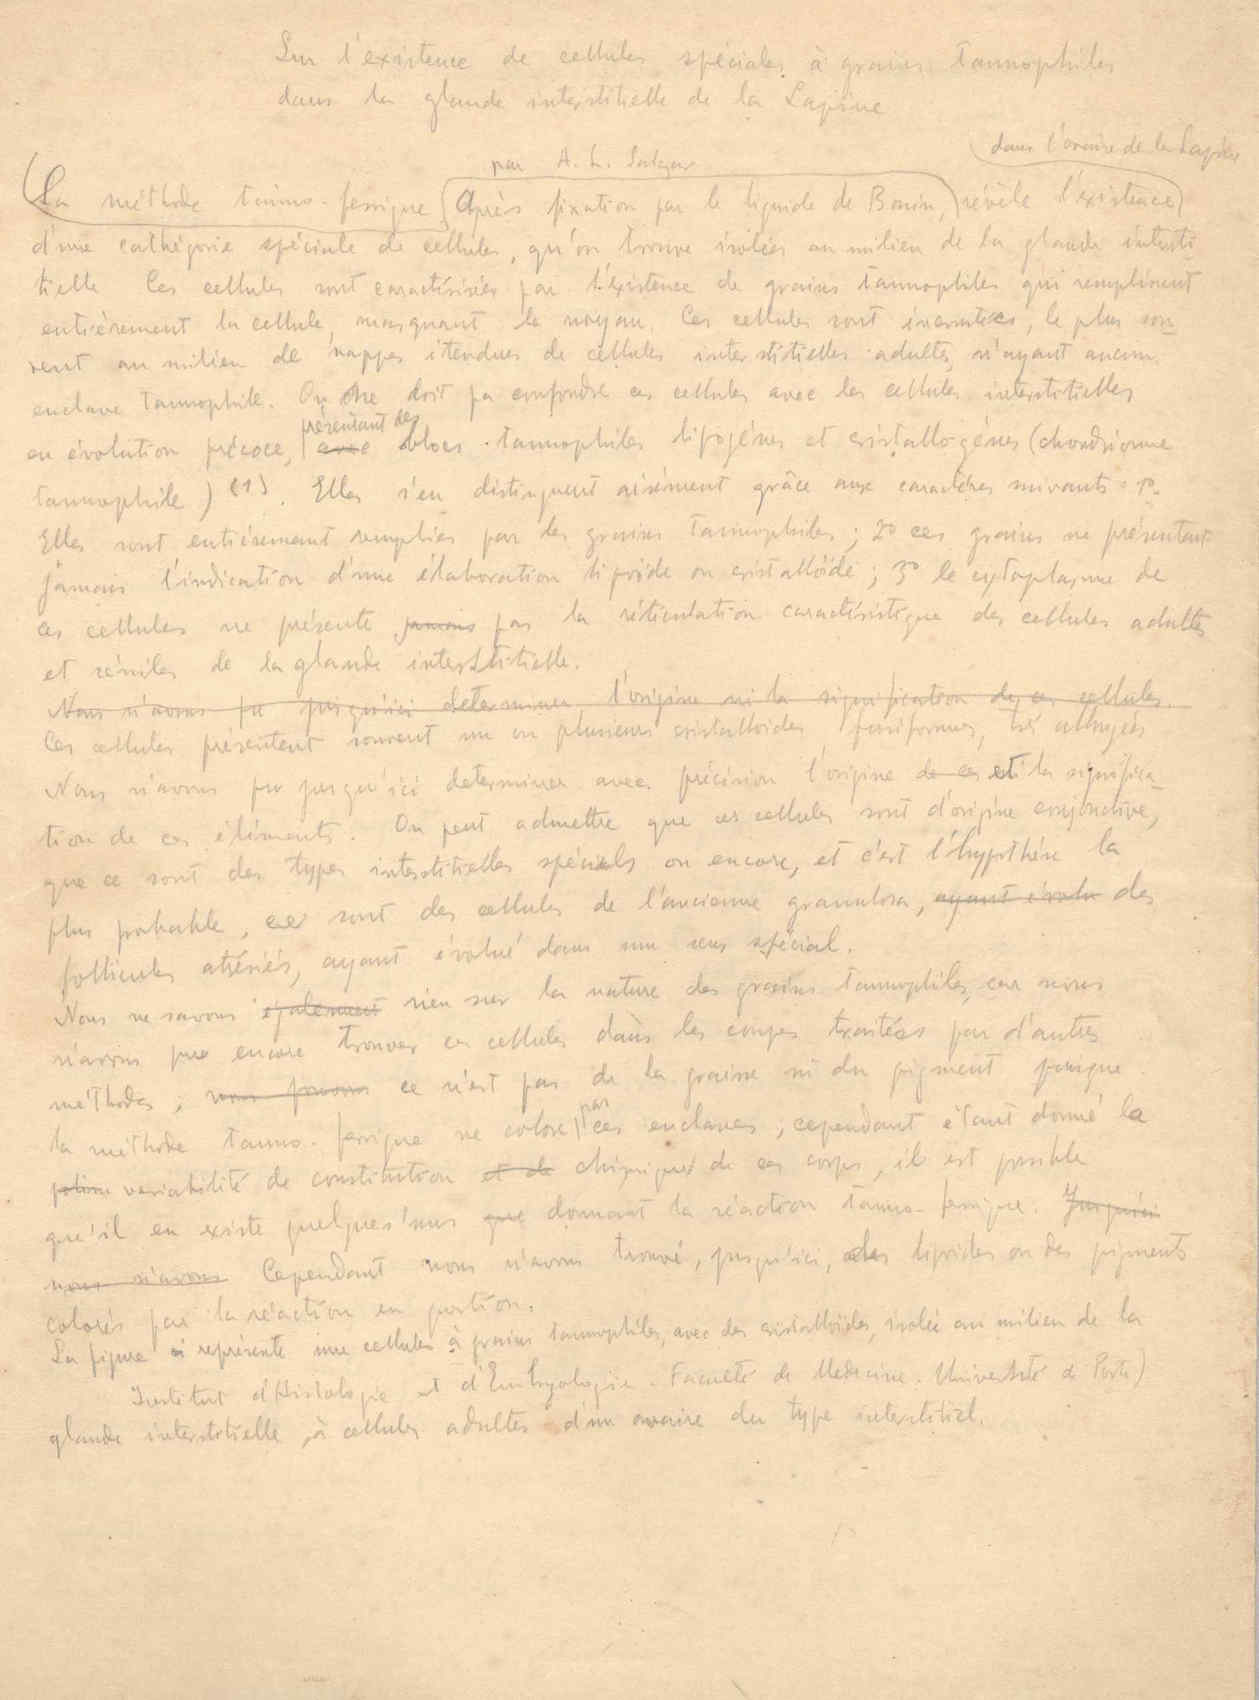 Sur l'existence de cellules spéciales à grains tannophiles
dans la glande interstitielle de la Lapine
par A. L. Salazar
dans l'ovaire de la Lapine
La méthode tanno-ferrique Après fixation par le liquide de Bouin, révèle l'existence
d'une cathégorie spéciale de cellules, qu'on trouve isolées au milieu de la glande intersti
tielle Ces cellules sont caractérisées par l'existence de grains tannophiles qui remplissent
entièrement la cellule, masquant le noyau. Ces cellules sont incrustées, le plus sou
vent au milieu de nappes étendues de cellules interstitielles adultes, n'ayant aucun
enclave tannophile. On ne doit pa confondre ces cellules avec les cellules interstitielles
présentant des
en évolution précoce, avec blocs tannophiles lipogénes et cristallogénes (chondriome
tannophile) (1). Elles s'en distinguent aisément grâce aux caractères suivants : 1º
Elles sont entièrement remplies par des grains tannophiles ; 2º ces grains ne présentant
jamais l'indication d'une élaboration lipoïde ou cristalloïde ; 3º le cytoplasme de
ces cellules ne présente jamais pas la réticulation caractéristique des cellules adultes
et séniles de la glande interstitielle.
Nous n'avons pu jusqu'ici determiner l'origine ni la signification de ces cellules.
Ces cellules présentent souvent un ou plusieurs cristalloides fusiformes, très allongés
Nous n'avons pu jusqu'ici determiner avec précision l'origine de ces et la significa
tion de ces éléments. On peut admettre que ces cellules sont d'origine conjonctive,
que ce sont des types interstitielles spécials ou encore, et c'est l'hypothèse la
plus probable, ce sont des cellules de l'ancienne granulosa, ayant évolu des
follicules atrésiés, ayant évolué dans un sens spécial.
Nous ne savons également rien sur la nature des grains tannophiles, car nous
n'avons pu encore trouver ces cellules dans les coupes traitées par d'autres
méthodes ; nous pouvons ce n'est pas de la graisse ni du pigment puisque
pas
la méthode tanno-ferrique ne colore ces enclaves ; cependant étant donné la
variabilité de constitution et de chimique de ces corps, il est possible
qu'il en existe quelques'uns que donnant la réaction tanno-ferrique. Jusqu'ici
nous n'avons Cependant nous n'avons trouvé, jusqu'ici, des lipoides ou des pigments
colorés par la réaction en question.
La figure représente une cellules à grains tannophiles, avec des cristalloïdes, isolée au milieu de la
Institut d'Histologie et d'Embryologie. Faculté de Medecine. Université de Porto)
glande interstitielle, à cellules adultes d'un ovaire du type interstitiel.